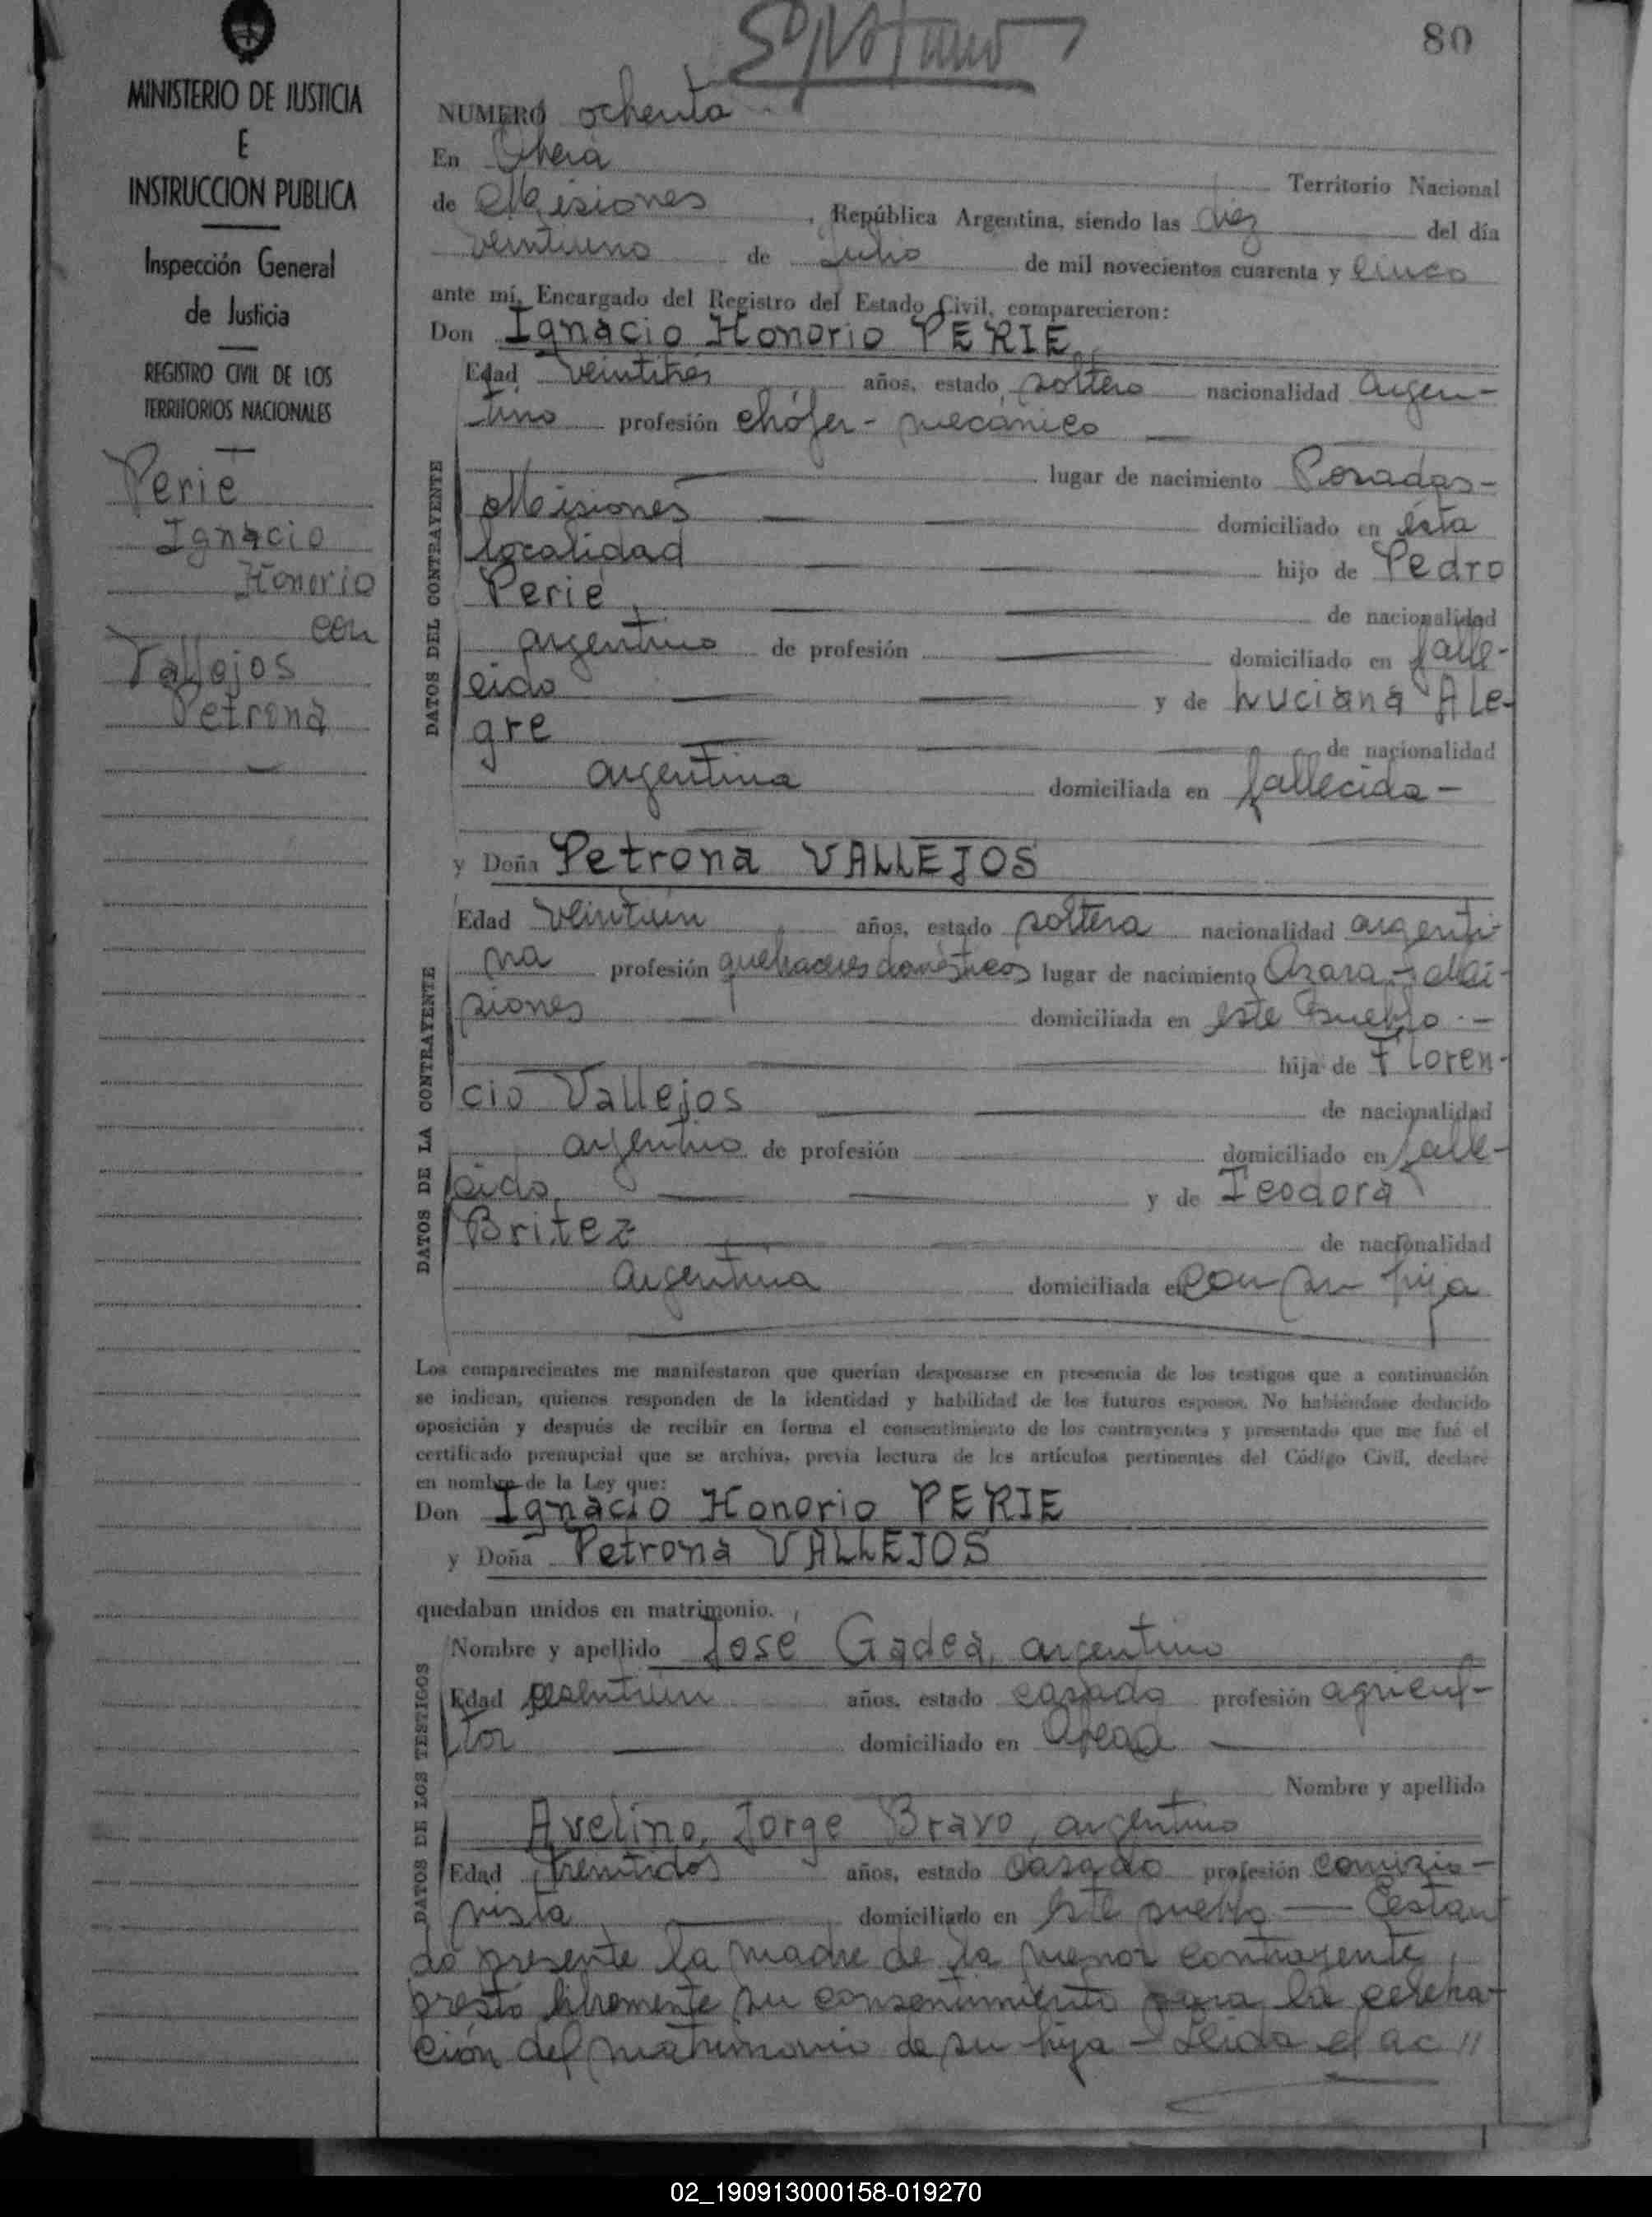 80
MINISTERIO DE JUSTICIA
E
INSTRUCCION PUBLICA
Inspección General
de Justicia
REGISTRO CIVIL DE LOS
TERRITORIOS NACIONALES
Perié
Ignacio
Honorio
con
Vallejos
Petrona
NUMERO ochenta
En Oberá
Territorio Nacional
de Misiones, República Argentina, siendo las diez del día
veintiuno de Julio de mil novecientos cuarenta y cinco
ante mí, Encargado del Registro del Estado Civil, comparecieron:
Don Ignacio Honorio PERIE
DATOS DEL CONTRAYENTE
Edad veintitres años, estado soltero nacionalidad argen-
tino profesión chófer - mecánico
lugar de nacimiento Posadas-
Misiones domiciliado en ésta
localidad hijo de Pedro
Perié, de nacionalidad
argentino de profesión domiciliado en falle-
cido y de Luciana Ale-
gre de nacionalidad
argentina domiciliada en fallecida-
y Doña Petrona VALLEJOS
DATOS DE LA CONTRAYENTE
Edad veintiun años, estado soltera nacionalidad argenti-
na profesión quehaceres domésticos lugar de nacimiento Azara - Mi-
siones domiciliada en este Pueblo.-
hija de Floren-
cio Vallejos de nacionalidad
argentino de profesión domiciliado en falle-
cido, y de Teodora
Britez de nacionalidad
argentina domiciliada en con su hija
Los comparecientes me manifestaron que querían desposarse en presencia de los testigos que a continuación
se indican, quienes responden de la identidad y habilidad de los futuros esposos. No habiéndose deducido
oposición y después de recibir en forma el consentimiento de los contrayentes y presentado que me fué el
certificado prenupcial que se archiva, previa lectura de los artículos pertinentes del Código Civil, declaré
en nombre de la Ley que:
Don Ignacio Honorio PERIE
y Doña Petrona VALLEJOS
quedaban unidos en matrimonio.
DATOS DE LOS TESTIGOS
Nombre y apellido José Gadea, argentino
Edad años, estado casado profesión agricul-
tor domiciliado en
Nombre y apellido
Avelino Jorge Bravo, argentino
Edad treintidos años, estado casado profesión comizio-
nista domiciliado en este pueblo — Estan
do presente la madre de la menor contrayente,
prestó libremente su consentimiento para la celebra-
ción del matrimonio de su hija - Leida el ac //
02_190913000158-019270